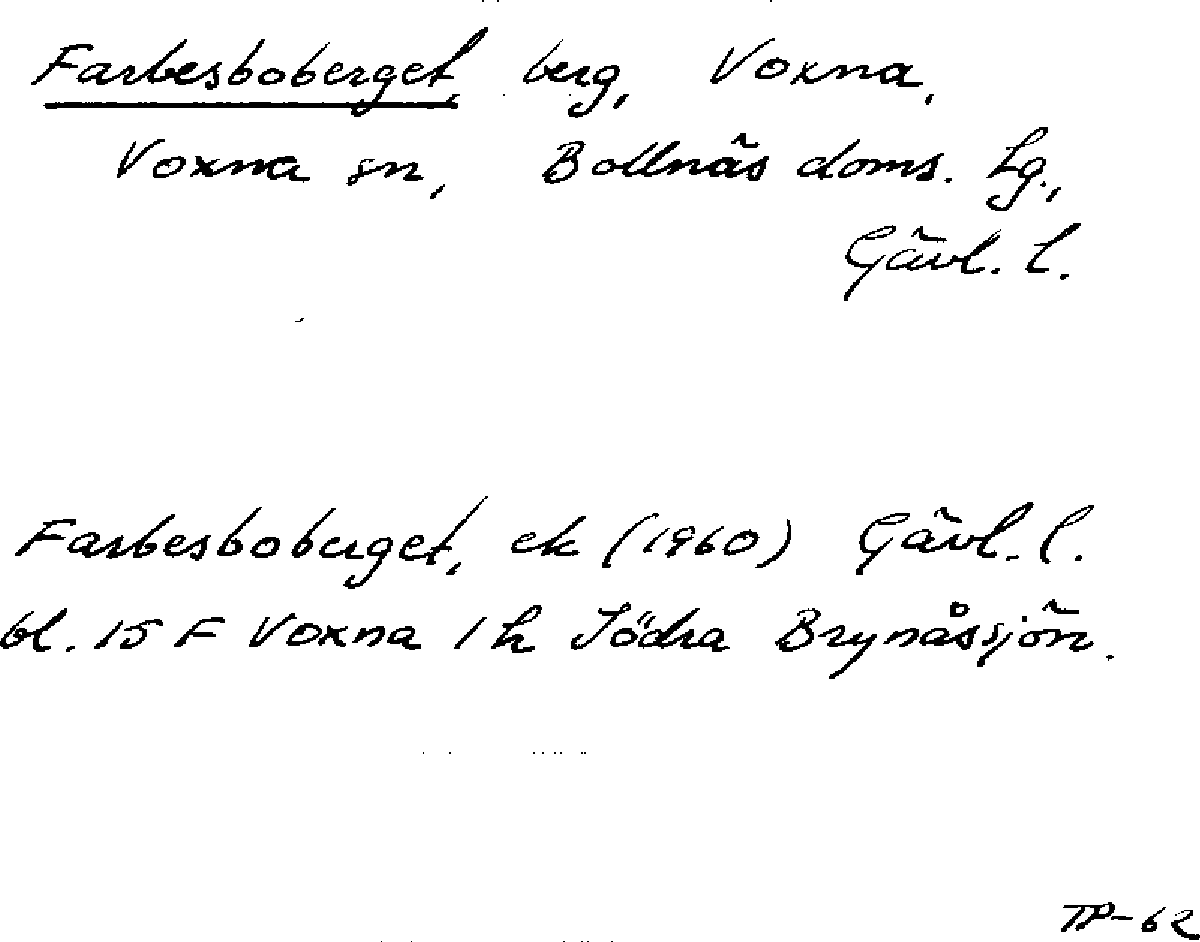 Farbesboberget, berg, Voxna,
Voxna sn, Bollnäs doms. Lg.,
Gävl. l.
Farbesboberget, ek (1960) Gävl. l.
bl. 15 F Voxna 1 h Södra Brynåssjön.
TP-62